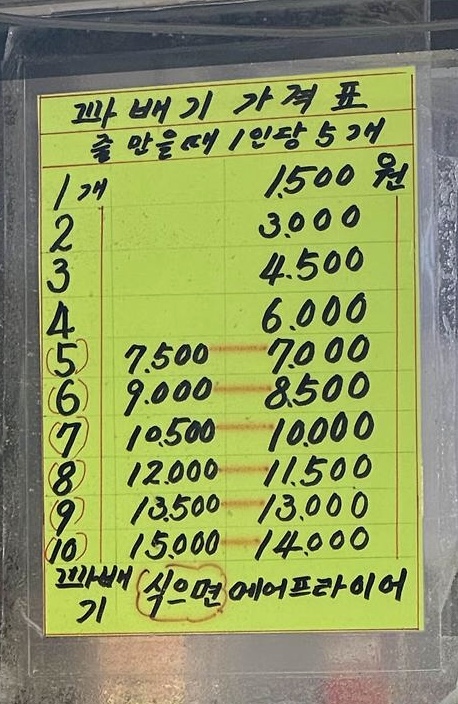 꽈배기 가격표
줄 많을때 1인당 5개
1개 1,500 원
2 3.000
3 4.500
4 6.000
5 7.500 7.000
6 9.000 8.500
7 10.500 10.000
8 12.000 11.500
9 13.500 13.000
10 15.000 14.000
꽈배기 식으면 에어프라이어